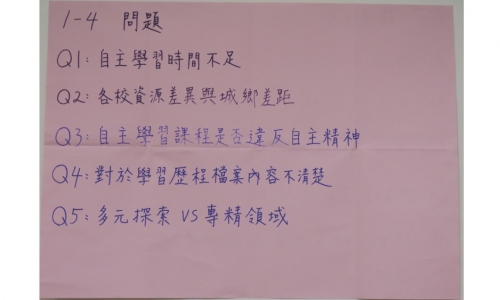 1-4 問題
Q1：自主學習時間不足
Q2：各校資源差異與城鄉差距
Q3：自主學習課程是否違反自主精神
Q4：對於學習歷程檔案內容不清楚
Q5：多元探索 VS 專精領域